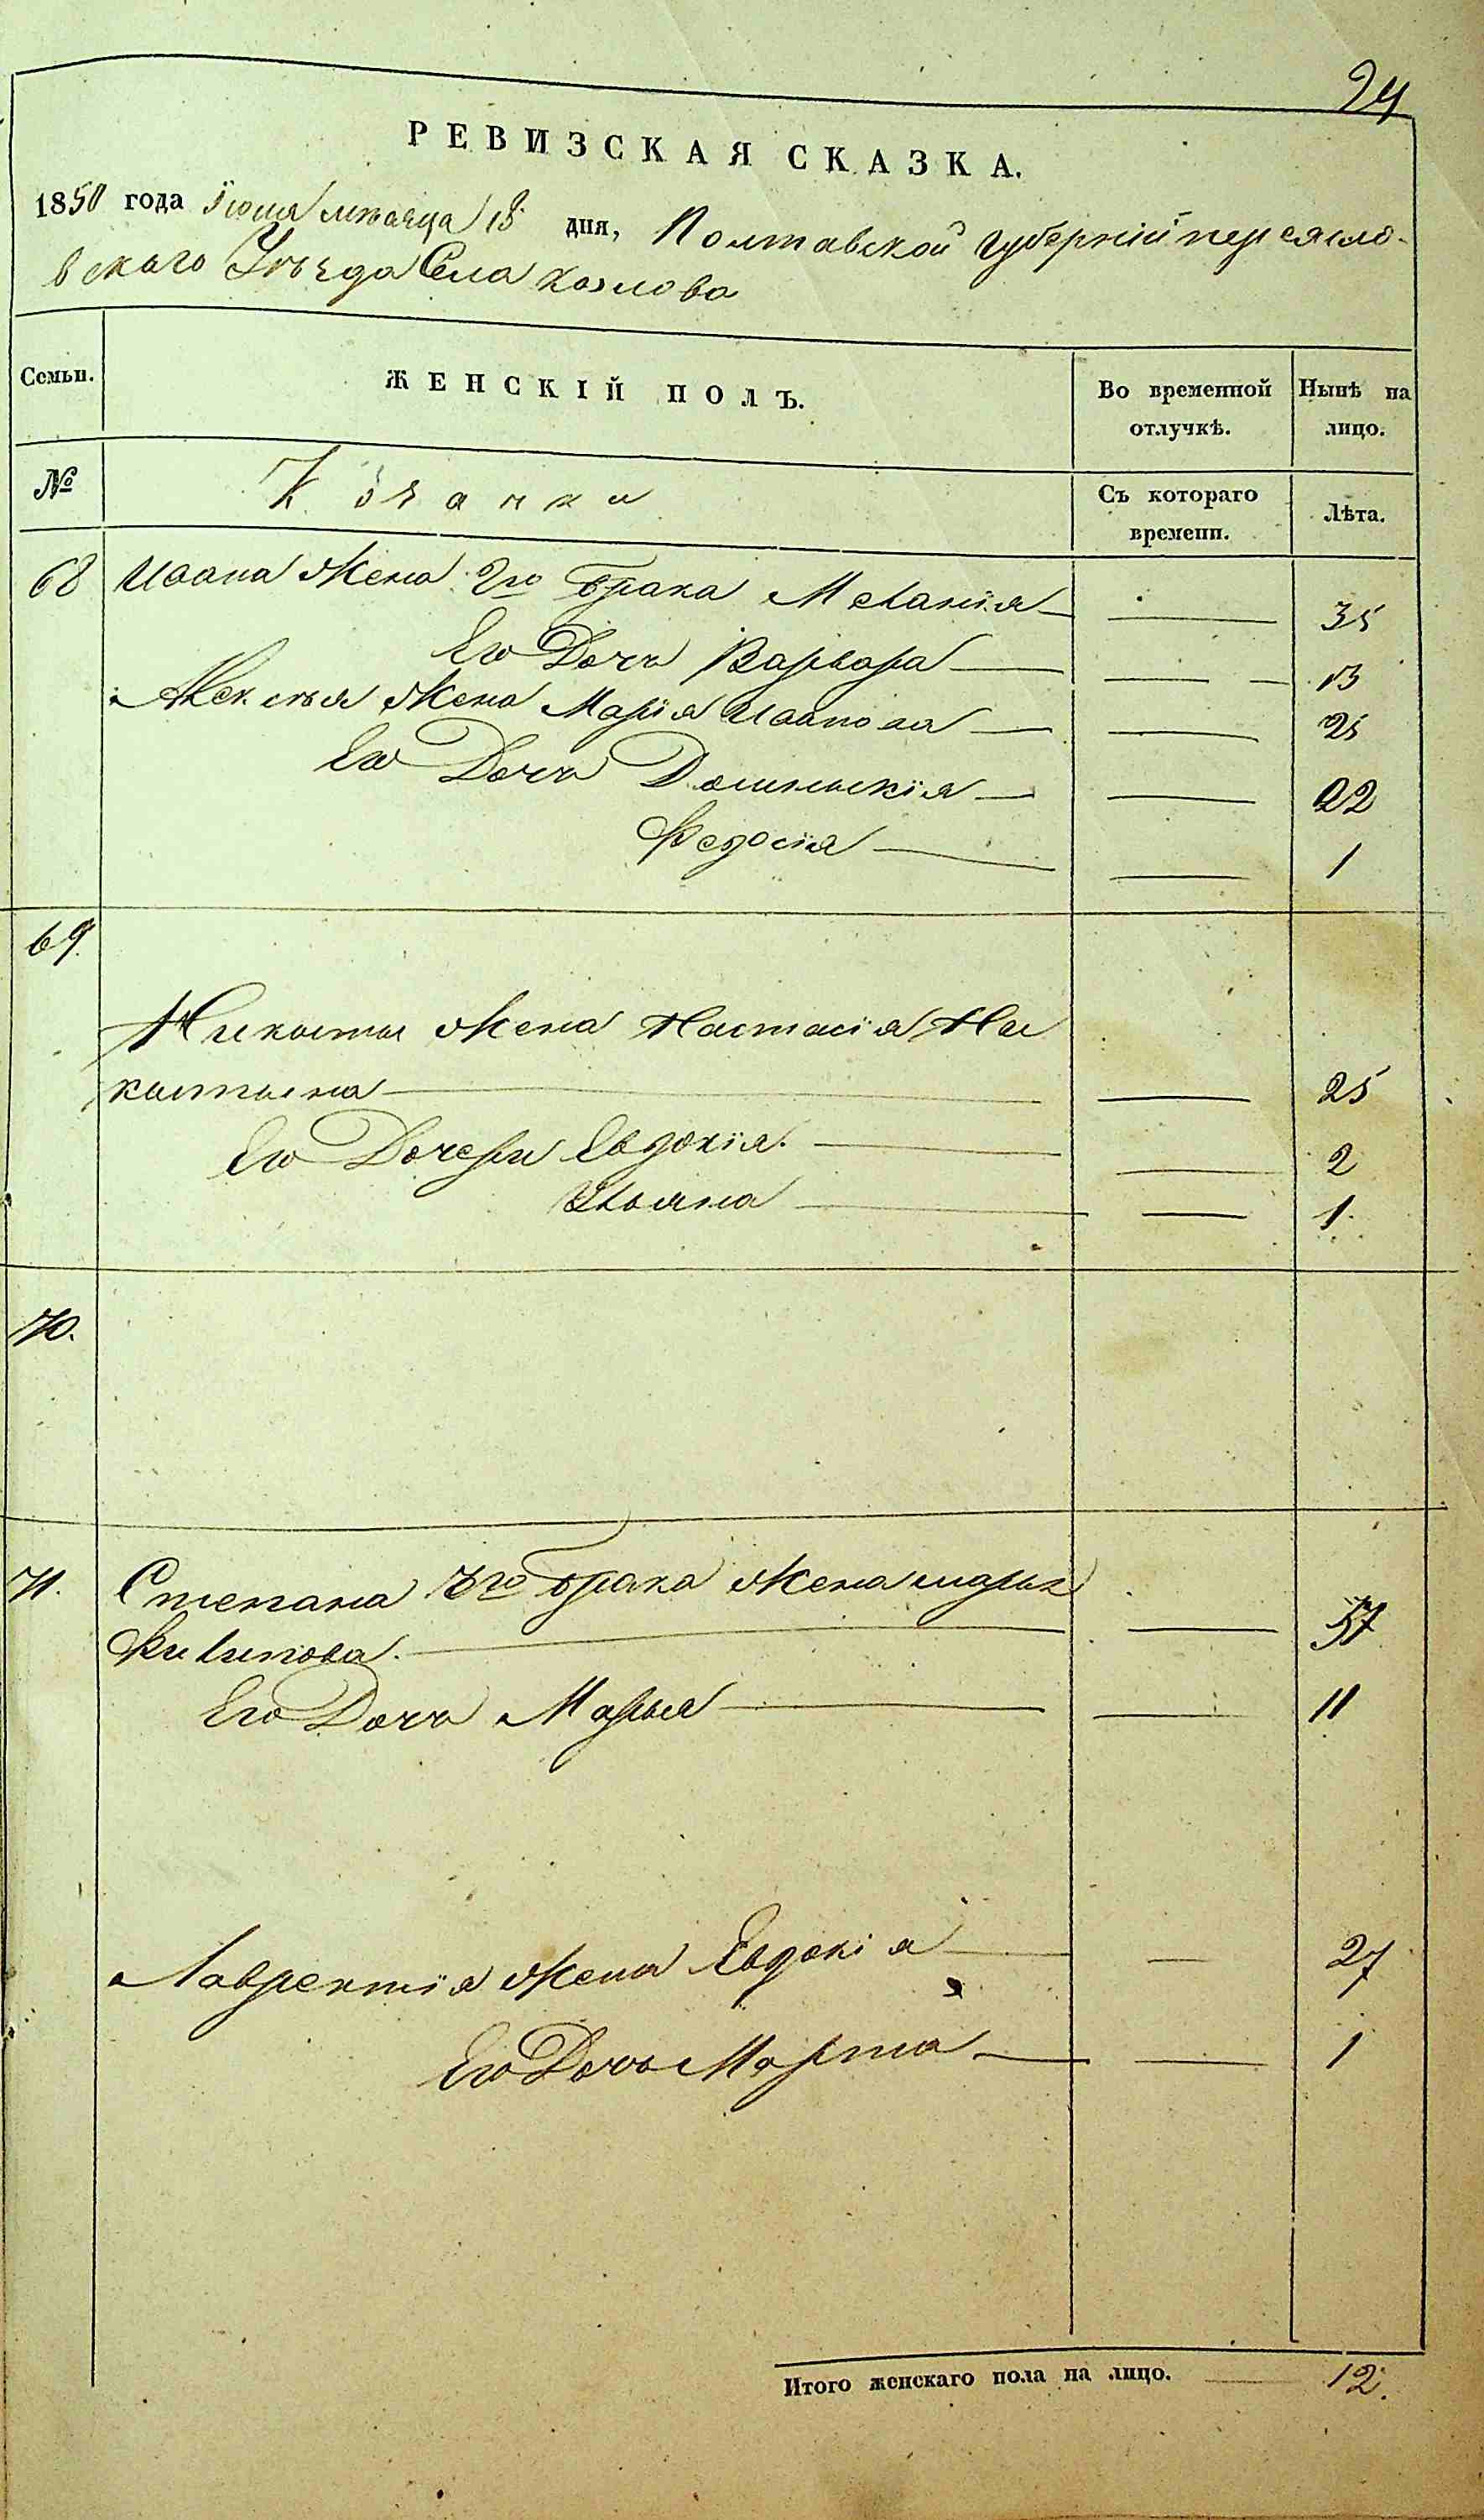 24
РЕВИЗСКАЯ СКАЗКА.
1850 года Іюня мѣсяца 18 дня, Полтавской губерніи переясло-
вскаго Уѣзда Села козлова
Семьи. ЖЕНСКІЙ ПОЛЪ. Во временной отлучкѣ. Нынѣ на лицо.
№ Козачки Съ котораго времени. Лѣта.
68 Ивана Жена 2го брака Меланія — — 35
Его Дочь Варвара — — 13
Алексѣя Жена Марія Иванова — — 25
Его Дочь — — 22
Федосія — — 1
69.
Никиты Жена Настасія Ни
китына — — 25
Его Дочери Евдокія. — — 2
Ульяна — — 1.
70.
71. Степана 3го брака Жена марья
Филипова. — — 37
Его Дочь Марья — — 11
Лаврентія Жена Евдокія — — 27
Его Дочь Марта — — 1
Итого женскаго пола на лицо. — 12.